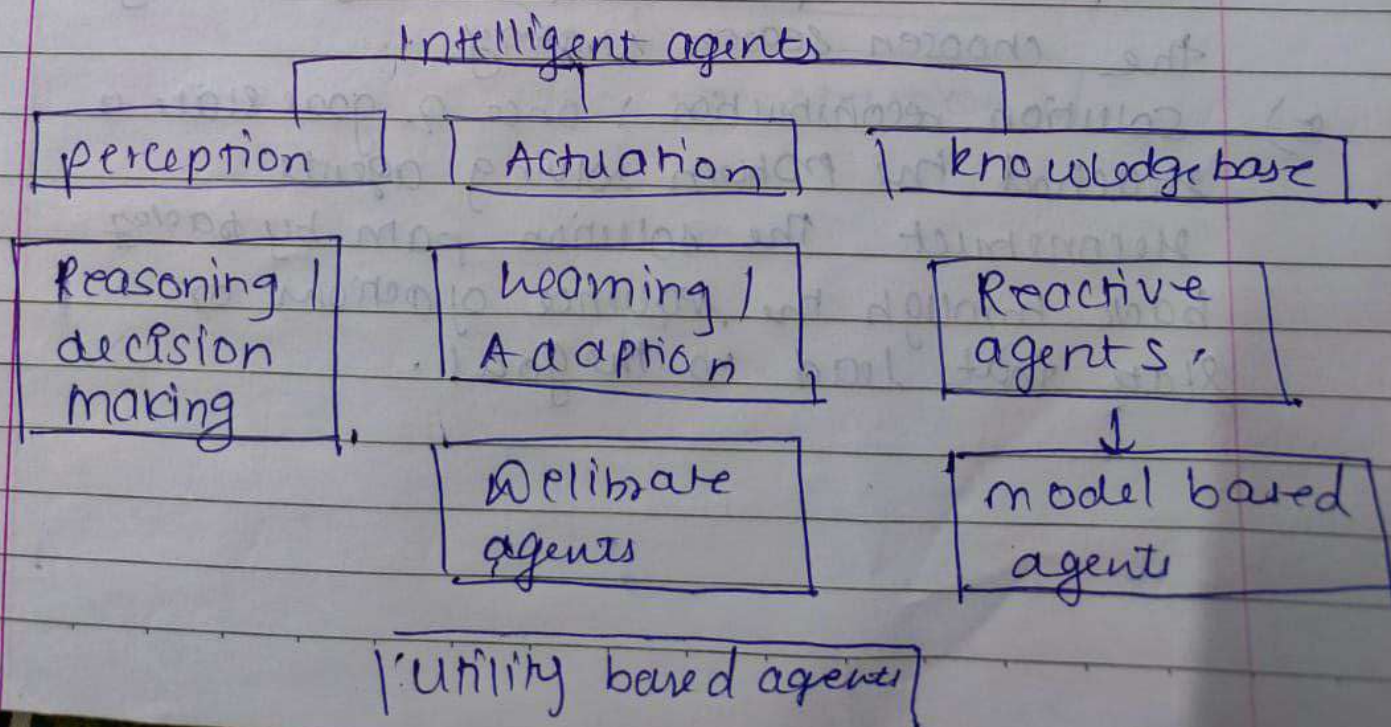 Intelligent agents
perception
Actuation
knowledge base
Reasoning /
decision
making
Learning /
Adaption
Reactive
agents.
Delibrate
agents
model based
agents
Utility based agents